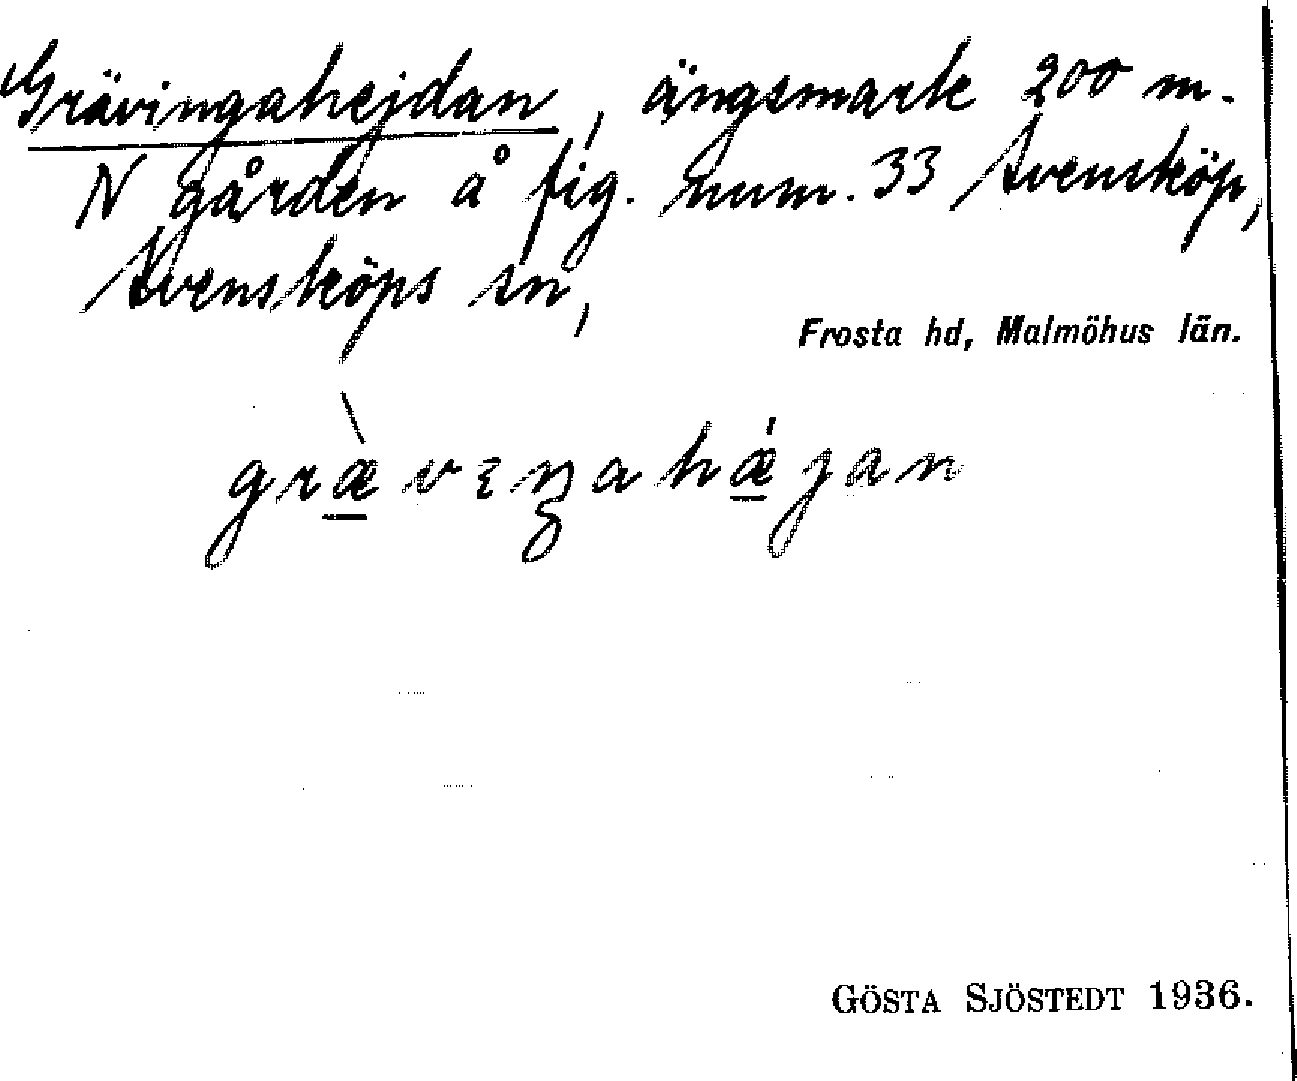 Grävingahejdan, ängsmark 200 m.
N gården å fig. num. 33 Svensköp,
Svensköps sn,
Frosta hd, Malmöhus län.
græ̀vɪŋahǽjan
GÖSTA SJÖSTEDT 1936.